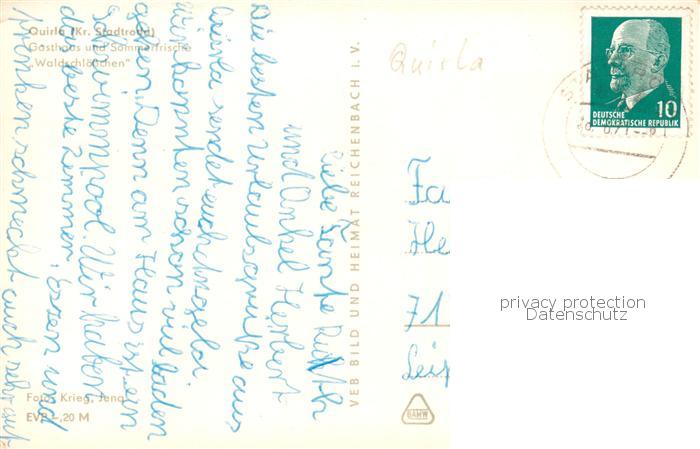 Quirla (Kr. Stadtroda)
Gasthaus und Sommerfrische
„Waldschlößchen"
Liebe Tante Ruth
und Onkel Herbert
Die besten Urlaubsgrüße aus
Quirla sendet euch
Wir konnten schon viel baden
gehen. Denn am Haus ist ein
Schwimmpool. Wir haben
das beste Zimmer, essen und
trinken schmeckt auch sehr gut
Foto: Krieg, Jena
EVP –,20 M
VEB BILD UND HEIMAT REICHENBACH I. V.
Quirla
10
DEUTSCHE
DEMOKRATISCHE REPUBLIK
Fa
He
71
Leip
BAHW
privacy protection
Datenschutz